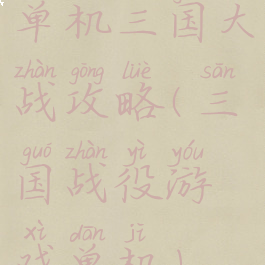 单机三国大
zhàn gōng lüè sān
战攻略(三
guó zhàn yì yóu
国战役游
xì dān jī
戏单机)